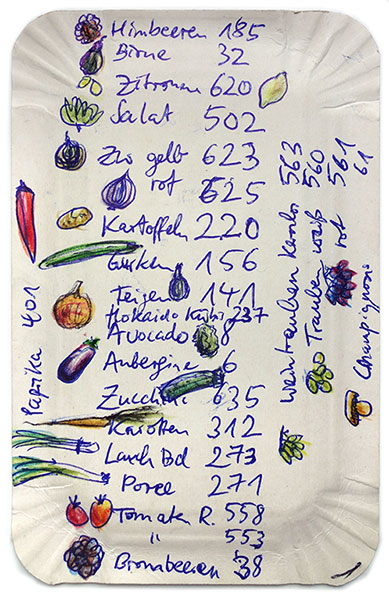 Himbeeren 185
Birne 32
Zitronen 620
Salat 502
Zw gelb 623
rot 625
Kartoffeln 220
Gurken 156
Feigen 141
Hokaido Kürbis 237
Avocado 8
Aubergine 6
Zucchini 635
Karotten 312
Lauch Bd 273
Poree 271
Tomaten R. 558
" 553
Brombeeren 38
Paprika 401
Weintrauben kernlos 563
Trauben weiß 560
rot 561
Champignons 61